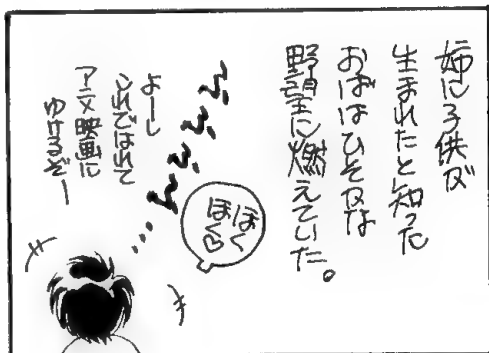 姉に子供が
生まれたと知った
おばはひそかな
野望に燃えていた。
ふふふふふふ…
ほく
ほく♡
よーし
これではれて
アニメ映画に
ゆけるぞー